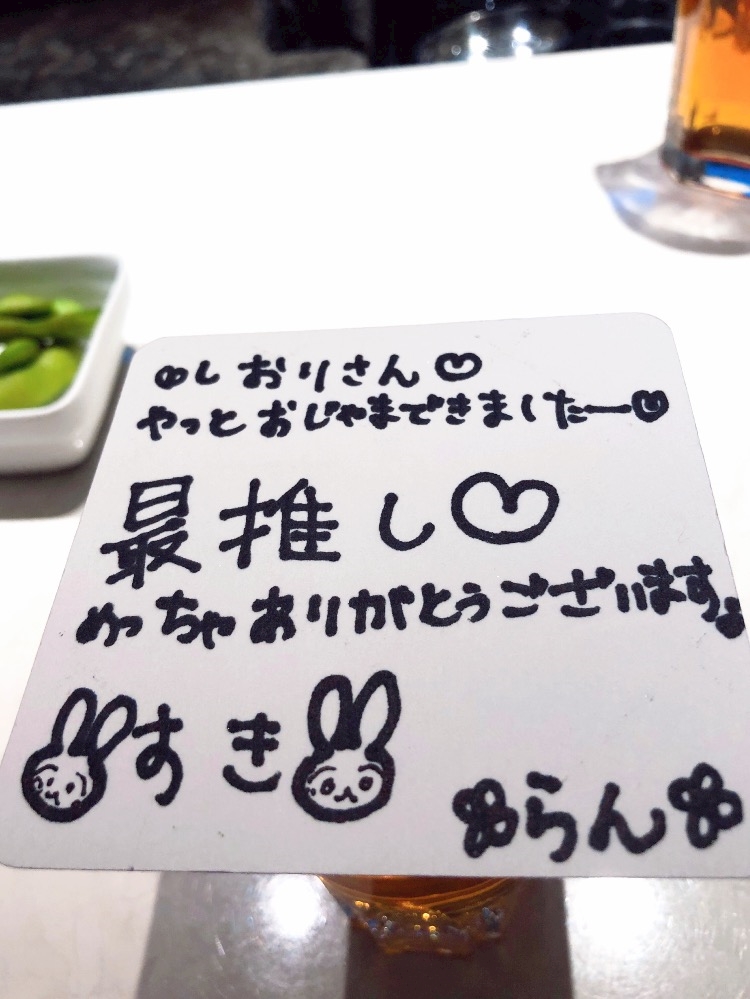 ♡しおりさん♡
やっとおじゃまできましたー♡
最推し♡
めっちゃありがとうございます。
すき
らん